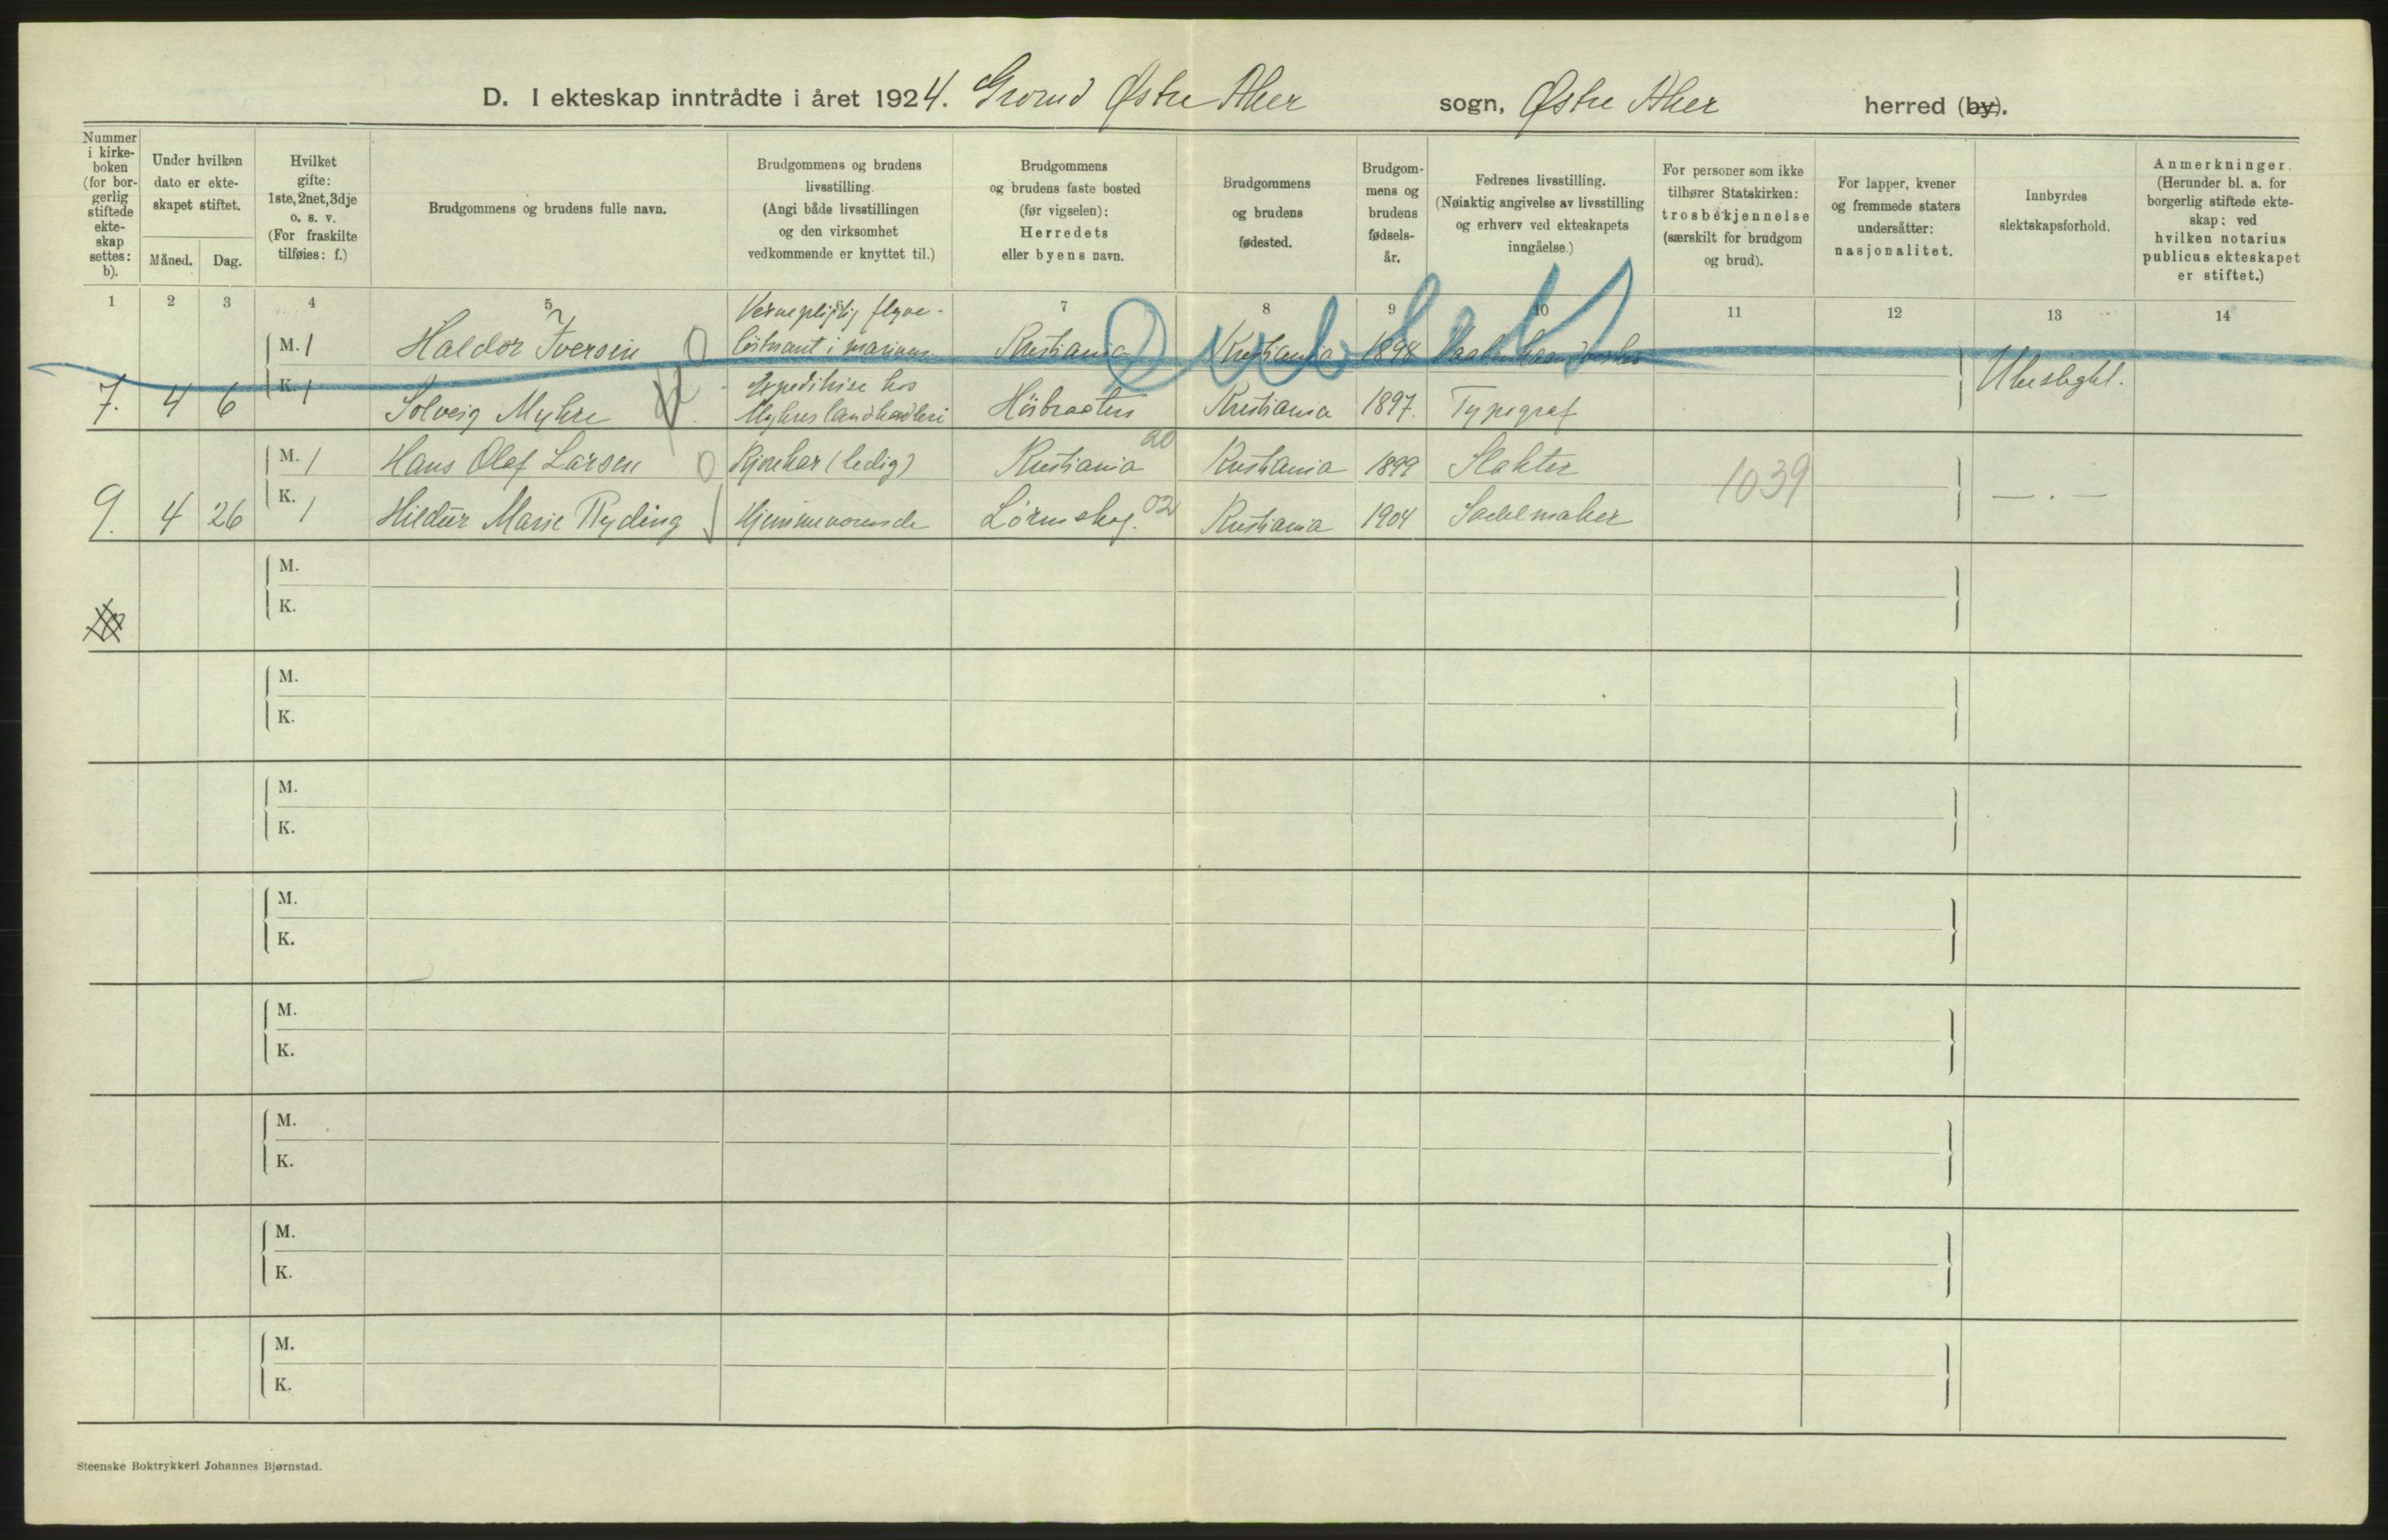 D. I ekteskap inntrådte i året 1924. Grorud Østre Aker sogn, Østre Aker herred (by).
Nummer i kirke-boken (for bor-gerlig stiftede ekte-skap settes: b).
Under hvilken dato er ekte-skapet stiftet.
Måned. Dag.
Hvilket gifte: 1ste, 2net, 3dje o. s. v. (For fraskilte tilføies: f.)
Brudgommens og brudens fulle navn.
Brudgommens og brudens livsstilling. (Angi både livsstillingen og den virksomhet vedkommende er knyttet til.)
Brudgommens og brudens faste bosted (før vigselen): Herredets eller byens navn.
Brudgommens og brudens fødested.
Brudgom-mens og brudens fødsels-år.
Fedrenes livsstilling. (Nøiaktig angivelse av livsstilling og erhverv ved ekteskapets inngåelse.)
For personer som ikke tilhører Statskirken: trosbekjennelse (særskilt for brudgom og brud).
For lapper, kvener og fremmede staters undersåtter: nasjonalitet.
Innbyrdes slektskapsforhold.
Anmerkninger. (Herunder bl. a. for borgerlig stiftede ekte-skap: ved hvilken notarius publicus ekteskapet er stiftet.)
1 2 3 4 5 6 7 8 9 10 11 12 13 14
Vernepligtig flyve-
M. 1 Haldor Iversen 0 løitnant i marinen Kristiania Kristiania 1898
Dublett
7. 4 6 K. 1 Solveig Myhre Ekspeditrise hos Myhres landhandleri Høibraaten Kristiania 1897. Typograf Ubeslegtet.
M. 1 Hans Olaf Larsen 0 Kjørekar (ledig) Kristiania 20 Kristiania 1899 Slakter 1039
9. 4 26 K. 1 Hildur Marie Ryding Hjemmeværende Lørenskog. 02 Kristiania 1904 Sadelmaker — . —
M.
K.
M.
K.
M.
K.
M.
K.
M.
K.
M.
K.
M.
K.
M.
K.
Steenske Boktrykkeri Johannes Bjørnstad.